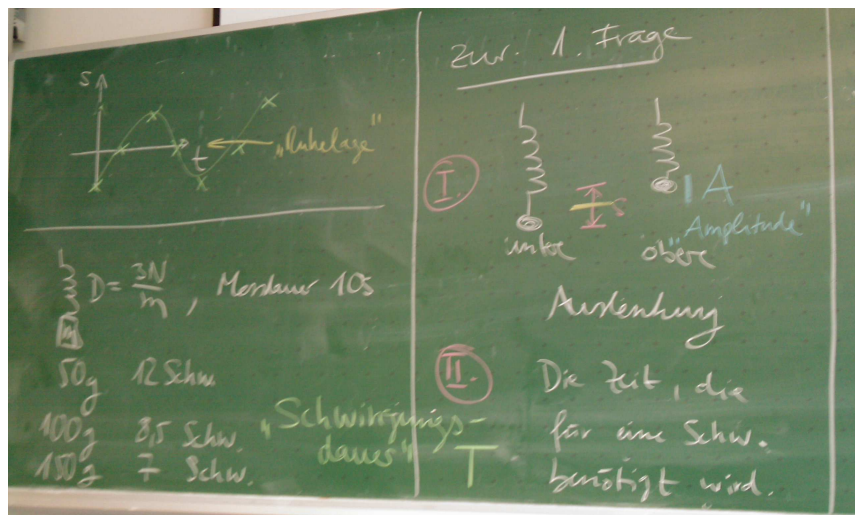 s
t
"Ruhelage"
D = 3N/m, Messdauer 10s
50g 12 Schw.
100g 8,5 Schw.
150g 7 Schw.
"Schwingungs-
dauer" T
zur 1. Frage
I.
s
A
"Amplitude"
untere obere
Auslenkung
II.
Die Zeit, die
für eine Schw.
benötigt wird.